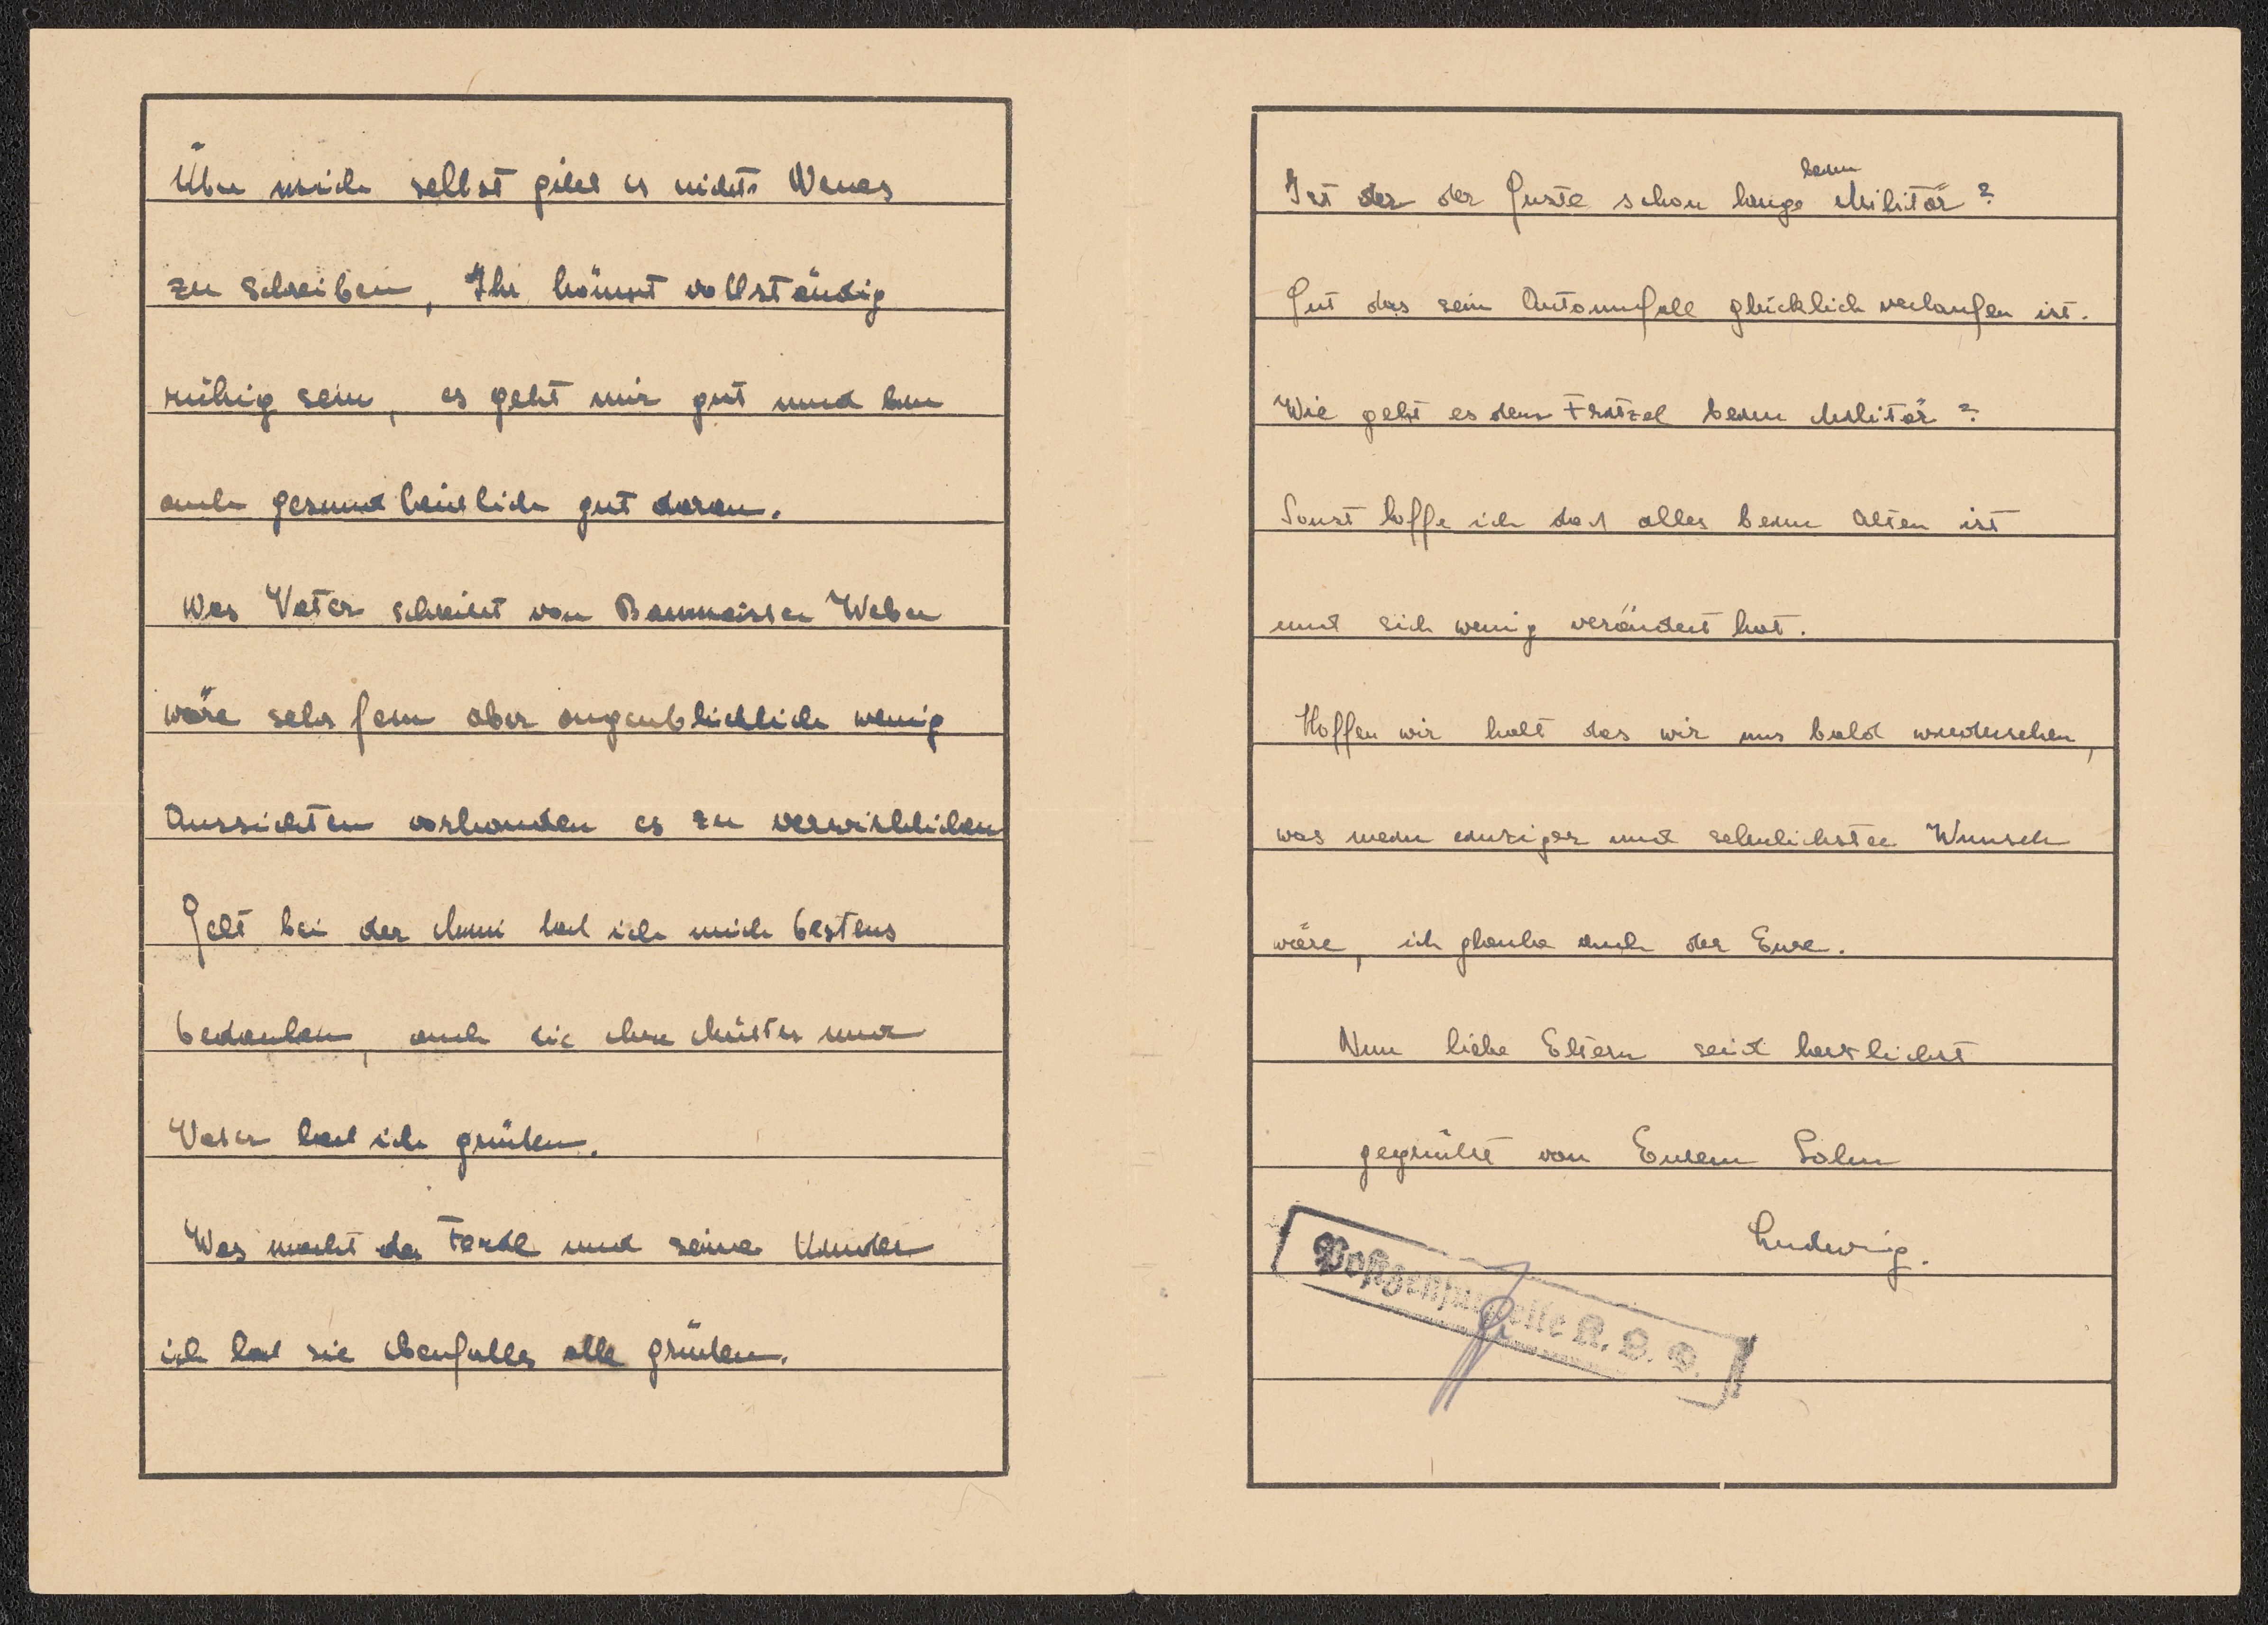 Über mich selbst gibt es nichts Neues
zu schreiben, Ihr könnt vollständig
ruhig sein, es geht mir gut und bin
auch gesundheitlich gut daran.
Was Vater schreibt von Baumeister Weber
wäre sehr fein aber augenblicklich wenig
Aussichten vorhanden es zu verwirklichen
Gelt bei der laß ich mich bestens
bedanken, auch sie ihre Mutter und
Vater laß ich grüßen.
Was macht der Ferdl und seine Kinder
ich laß sie ebenfalls alle grüßen.
Ist der der Guste schon lange beim Militär?
Gut das sein Autounfall glücklich verlaufen ist.
Wie geht es dem Fratzel beim Militär?
Sonst hoffe ich das alles beim Alten ist
und sich wenig verändert hat.
Hoffen wir halt das wir uns bald wiedersehen,
was mein einziger und sehnlichster Wunsch
wäre, ich glaube auch der Eure.
Nun liebe Eltern seid herzlichst
gegrüßt von Eurem Sohn
Ludwig.
Postzensurstelle K. L. D.